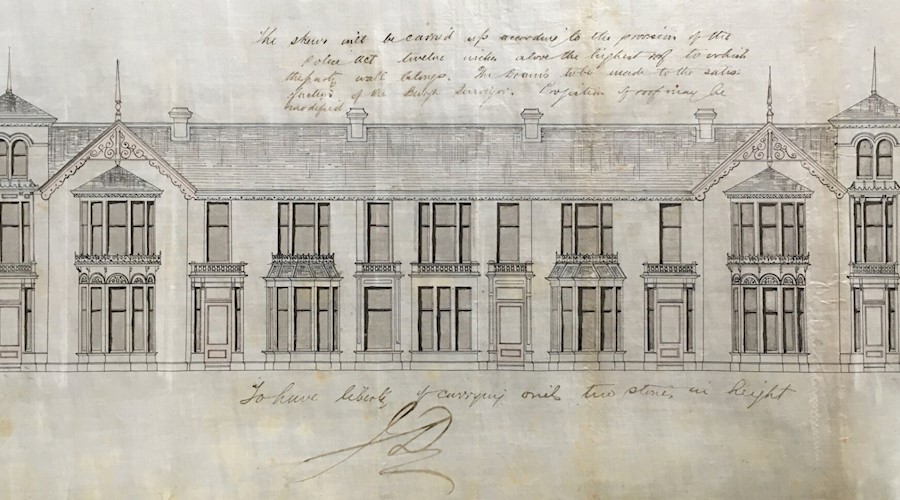 The skews will be carried up according to the provision of the
Police act twelve inches above the highest roof to which
the party wall belongs. The Drains to be made to the satis
faction of the Burgh Surveyor. Projection of roof may be
modified
To have liberty of carrying only two stories in height